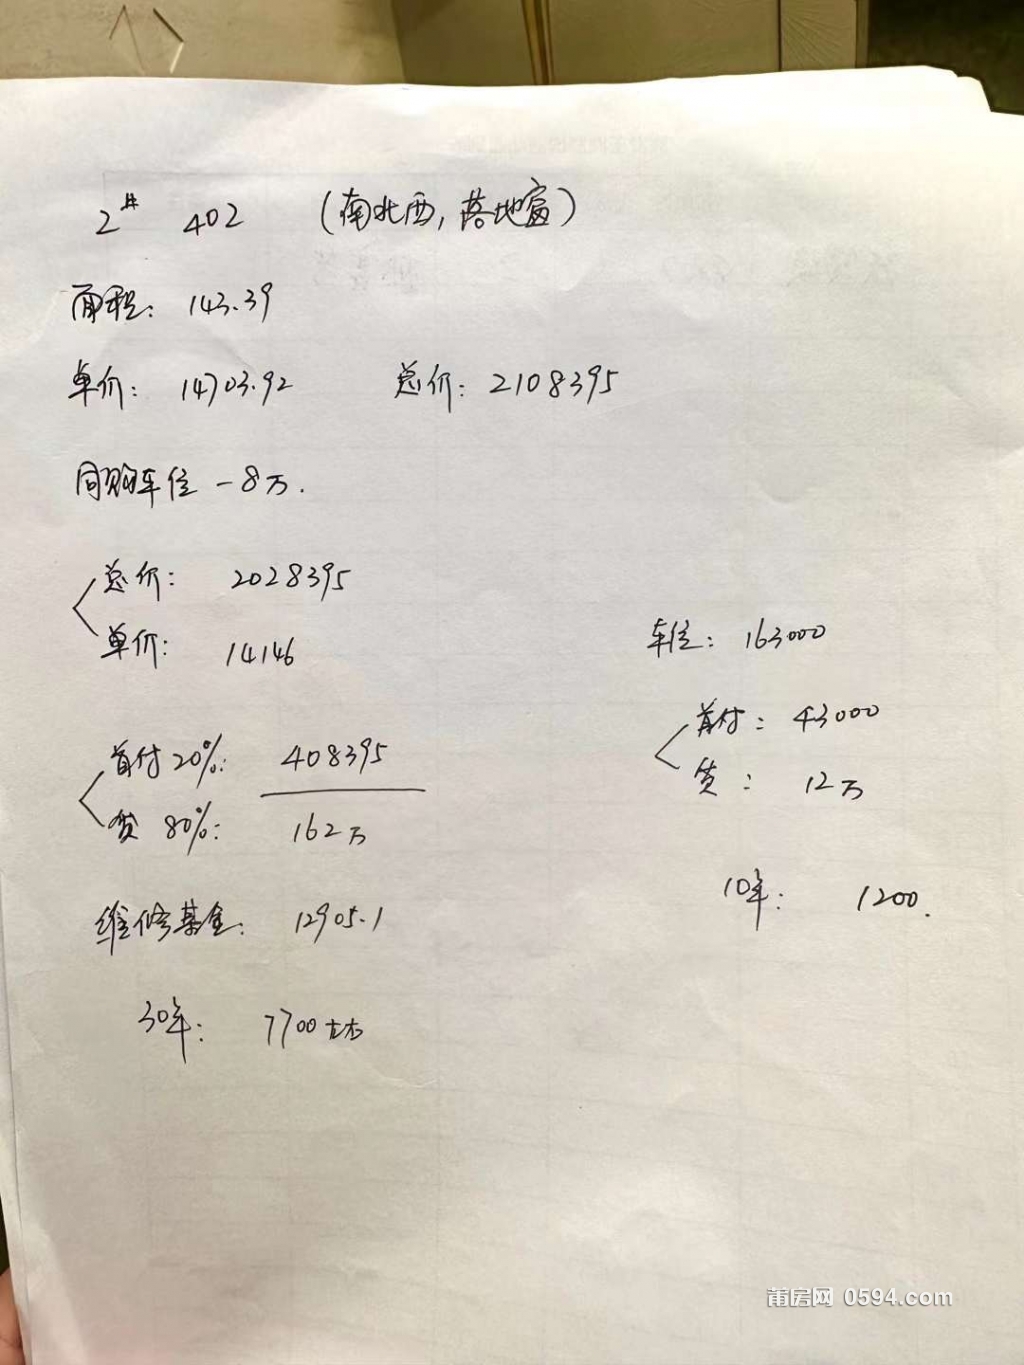 2# 402 (南北西,落地窗)
面积: 143.39
单价: 14703.92 总价: 2108395
同购车位 -8万.
总价: 2028395
单价: 14146
车位: 163000
首付: 43000
贷: 12万
首付20%: 408395
贷 80%: 162万
10年: 1200.
维修基金: 12905.1
30年: 7700左右
莆房网 0594.com